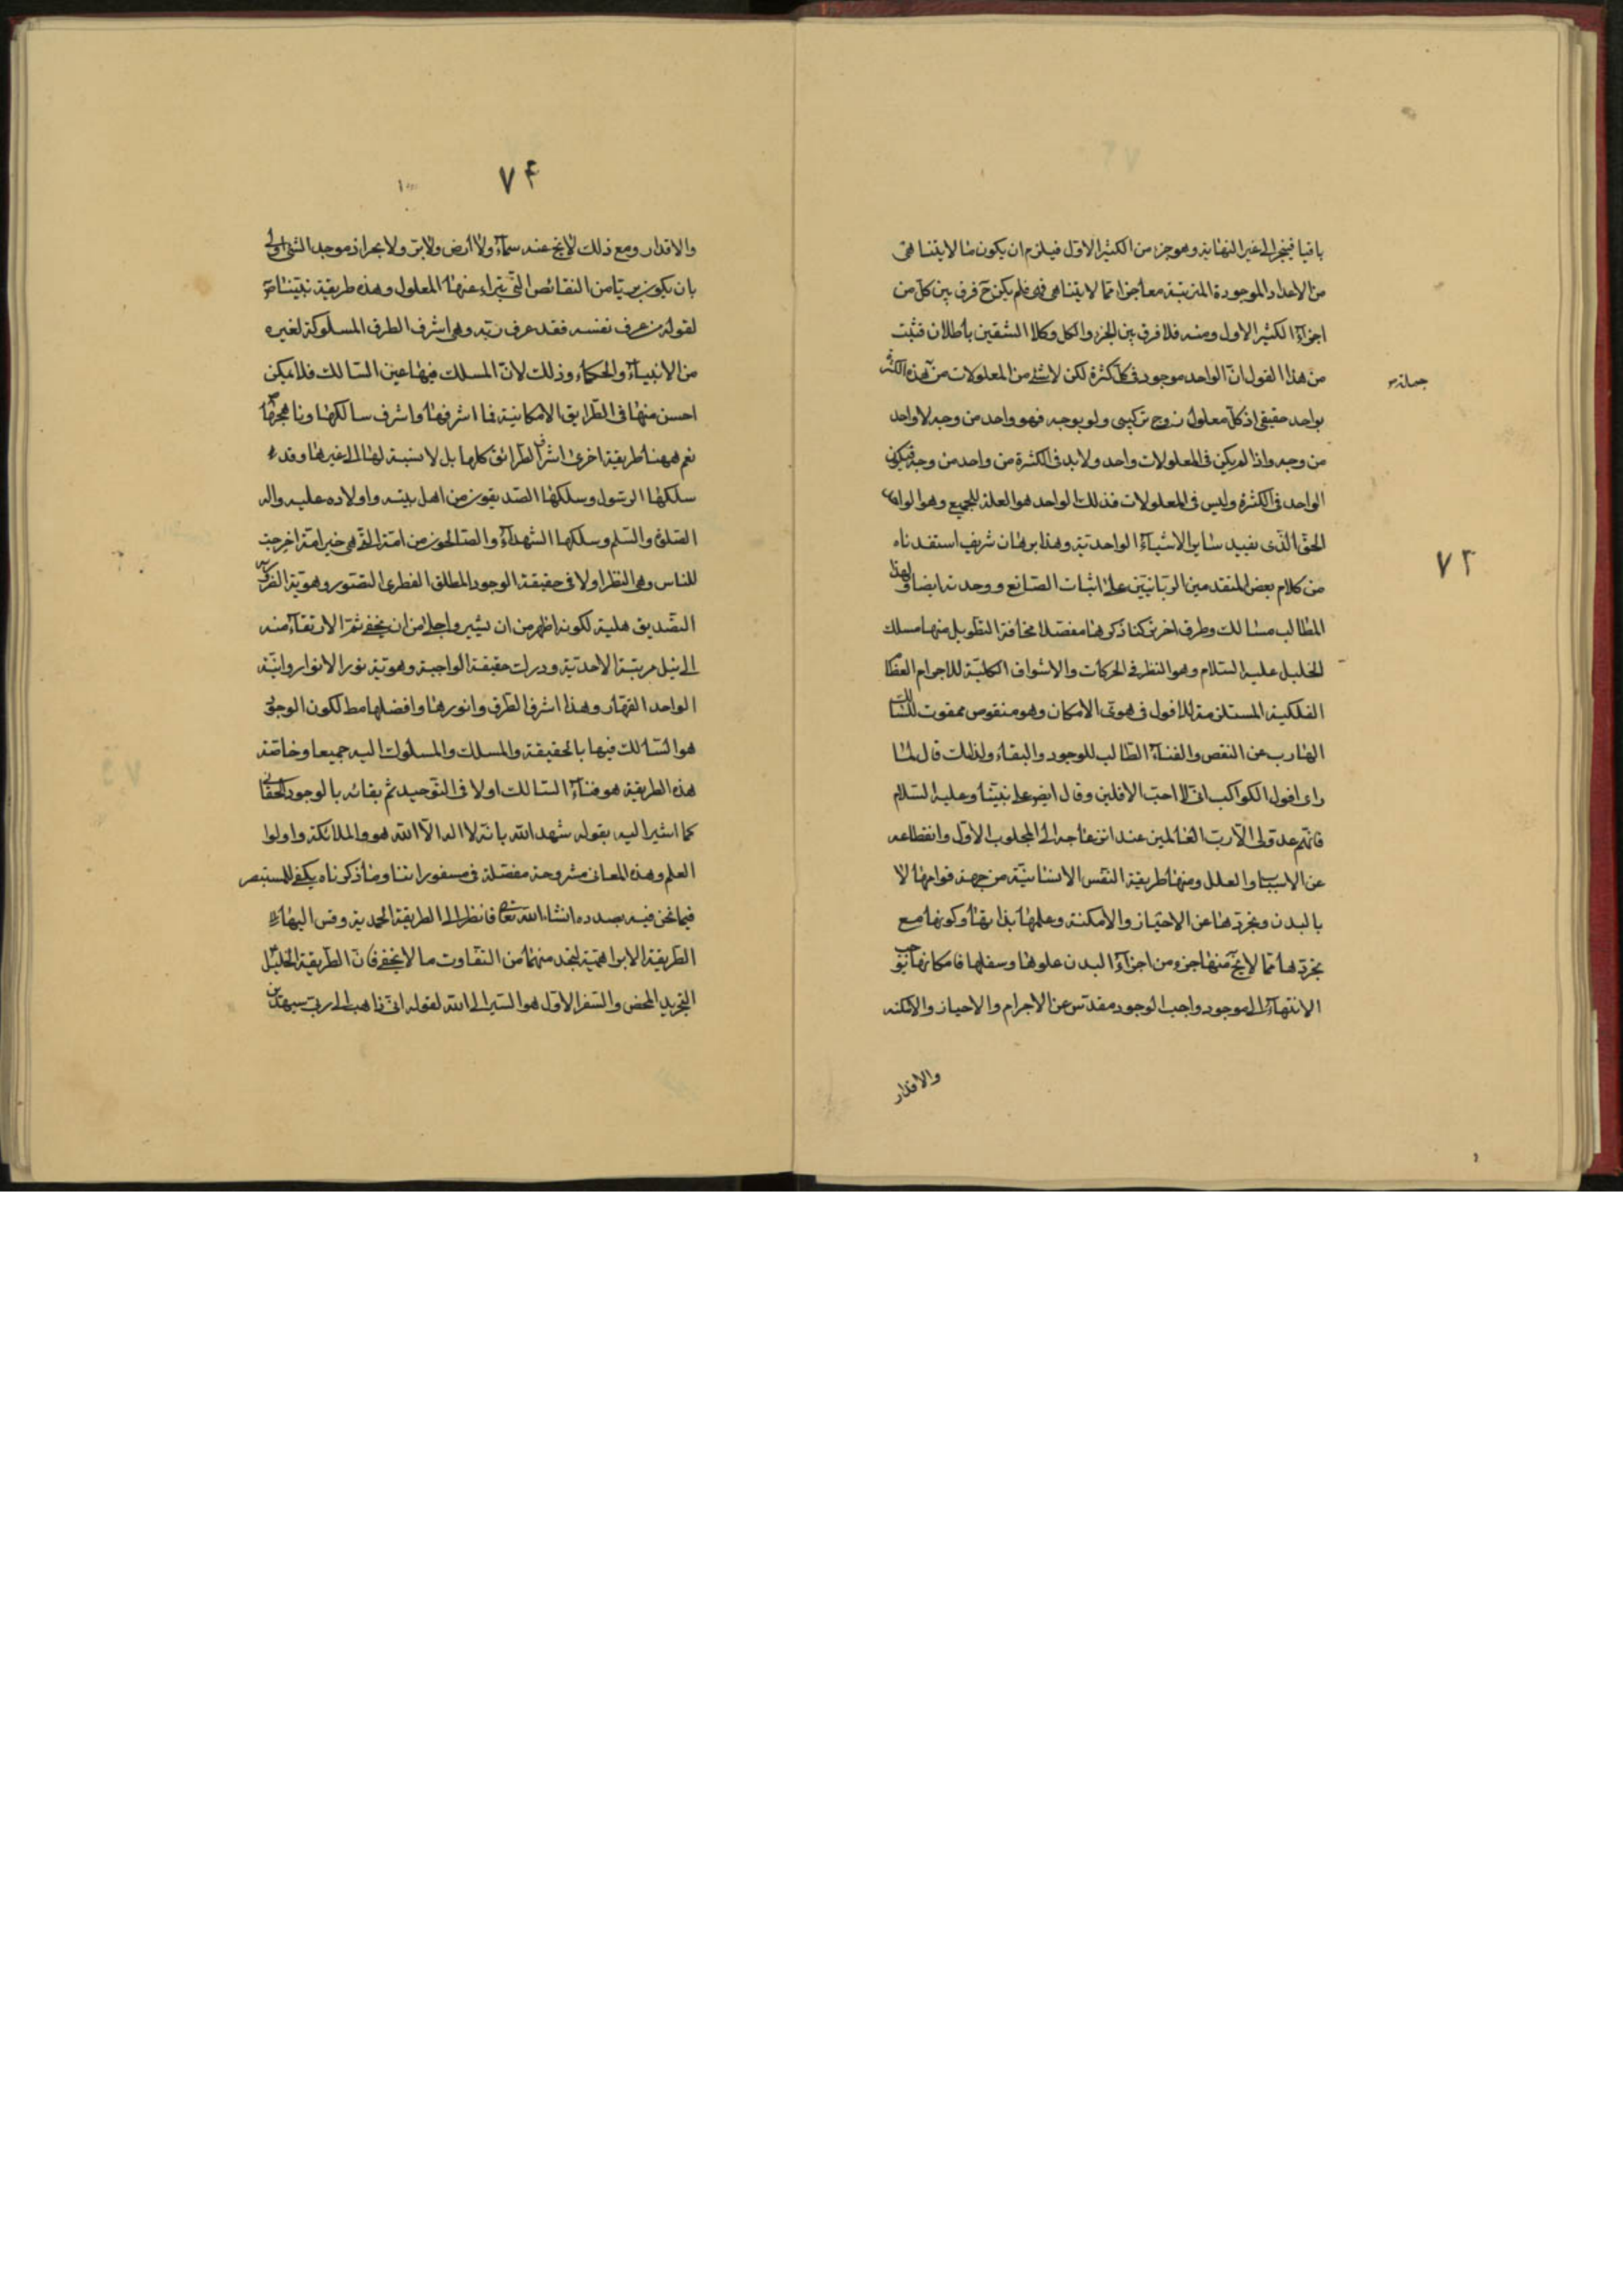 باقيا فينجر الى غير النهاية وهو جزء من الكثير الاول فيلزم ان يكون ما لا يتناهى
من الاعداد الموجودة المترتبة معا جزء مما لا يتناهى فلم يكن ح فرق بين كل من
اجزاء الكثير الاول ومنه فلا فرق بين الجزء والكل وكلا الشقين باطلان فثبت
من هذا القول ان الواحد موجود فى كل كثرة لكن لا شئ من المعلولات من هذه الكثرة
بواحد حقيقى اذ كل معلول زوج تركيبى ولو بوجه فهو واحد من وجه لا واحد
من وجه واذا لم يكن فى المعلولات واحد ولا بد فى الكثرة من واحد من وجه فيكون
الواحد فى الكثرة وليس فى المعلولات فذلك الواحد هو العلة للجميع وهو الواحد
الحق الذى يفيد ساير الاشياء الواحدية وهذا برهان شريف استفدناه
٧٣
من كلام بعض المتقدمين الربانيين على اثبات الصانع ووحدته ايضا ولهذا
المطالب مسالك وطرق اخر تركنا ذكرها مفصلا مخافة التطويل منها مسلك
الخليل عليه السلام وهو النظر فى الحركات والاشواق الكلية للاجرام العظام
الفلكية المستلزمة للافول فى هوى الامكان وهو منقوص ممقوت للسالك
الهارب عن النقص والفناء الطالب للوجود والبقاء ولذلك قال لما
راى افول الكواكب انى لا احب الافلين وقال ايض على نبينا وعليه السلام
فانهم عدو لى الا رب العالمين عند انزعاجه الى المجلوب الاول وانقطاعه
عن الاسباب والعلل ومنها طريقة النفس الانسانية من جهة قوامها لا
بالبدن وتجردها عن الاحياز والامكنة وعلمها بذاتها وكونها مع
تجردها مما لا يخ منها جزء من اجزاء البدن علوها وسفلها فامكانها يوجب
الانتهاء الى موجود واجب الوجود مقدس عن الاجرام والاحياز والامكنه
والاقدار
٧۴
والاقدار ومع ذلك لا يخ عنه سماء ولا ارض ولا بر ولا بحر اذ موجد الشئ اولى
بان يكون بريا من النقائص التى تبرء عنها المعلول وهذه طريقة نبينا ص
لقوله من عرف نفسه فقد عرف ربه وهى اشرف الطرق المسلوكة لغيره
من الانبياء والحكماء وذلك لان المسلك فيها عين السالك فلا يمكن
احسن منها فى الطرايق الامكانية فما اشرفها واشرف سالكها وناهجها
نعم ههنا طريقة اخرى اشرف الطرائق كلها بل لا نسبة لها الى غيرها وقد
سلكها الرسول وسلكها الصديقون من اهل بيته واولاده عليه واله
الصلوة والسلم وسلكها الشهداء والصالحون من امته التى هى خير امة اخرجت
للناس وهى النظر اولا فى حقيقة الوجود المطلق الفطرى التصور وهوية الضرورى
التصديق هلية لكونه اظهر من ان يستر واجلى من ان يخفى ثم الارتقاء منه
الى نيل مرتبة الاحدية ودرك حقيقة الواجبة وهوية نور الانوار وانية
الواحد القهار وهذا اشرف الطرق وانورها وافضلها مط لكون الوجود
هو السالك فيها بالحقيقة والمسلك والمسلوك اليه جميعا وخاصة
هذه الطريقة هو فناء السالك اولا فى التوحيد ثم بقائه بالوجود الحقانى
كما اشير اليه بقوله شهد الله بانه لا اله الا الله هو والملائكة واولوا
العلم وهذه المعانى مشروحة مفصلة فى مسفوراتنا وما ذكرناه يكفى للمستبصر
فيما نحن فيه بصدده انشاء الله تعالى فانظر الى الطريقة المحمدية وقس اليها
الطريقة الابراهيمية لتجد منهما من التفاوت ما لا يخفى فان الطريقة الخليل
التجريد المحض والسفر الاول هو السير الى الله لقوله انى ذاهب الى ربى سيهدين